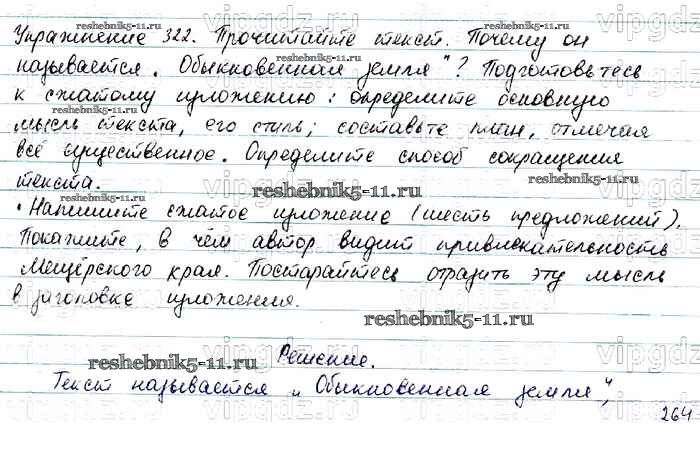 Упражнение 322. Прочитайте текст. Почему он
называется „Обыкновенная земля"? Подготовьтесь
к сжатому изложению: определите основную
мысль текста, его стиль; составьте план, отмечая
всё существенное. Определите способ сокращения
текста.
• Напишите сжатое изложение (шесть предложений).
Покажите, в чём автор видит привлекательность
Мещёрского края. Постарайтесь отразить эту мысль
в заголовке изложения.
Решение.
Текст называется „Обыкновенная земля",
264
reshebnik5-11.ru
reshebnik5-11.ru
reshebnik5-11.ru
reshebnik5-11.ru
reshebnik5-11.ru
vipgdz
vipgdz
vipgdz
vipgdz